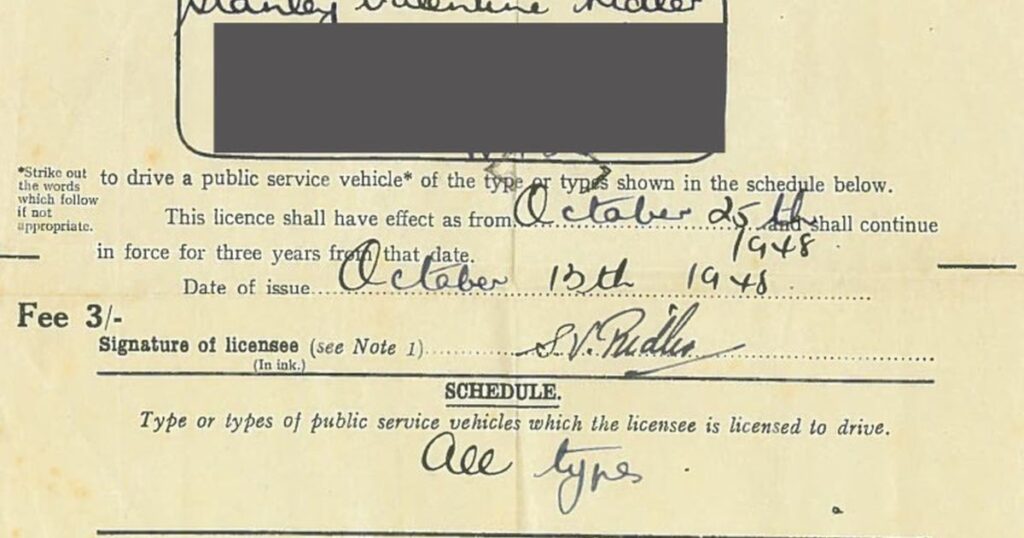 Stanley Valentine Ridler
*Strike out
the words
which follow
if not
appropriate.
to drive a public service vehicle* of the type or types shown in the schedule below.
This licence shall have effect as from October 25th and shall continue
1948
in force for three years from that date.
Date of issue October 13th 1948
Fee 3/-
Signature of licensee (see Note 1) S.V. Ridler
(In ink.)
SCHEDULE.
Type or types of public service vehicles which the licensee is licensed to drive.
All types